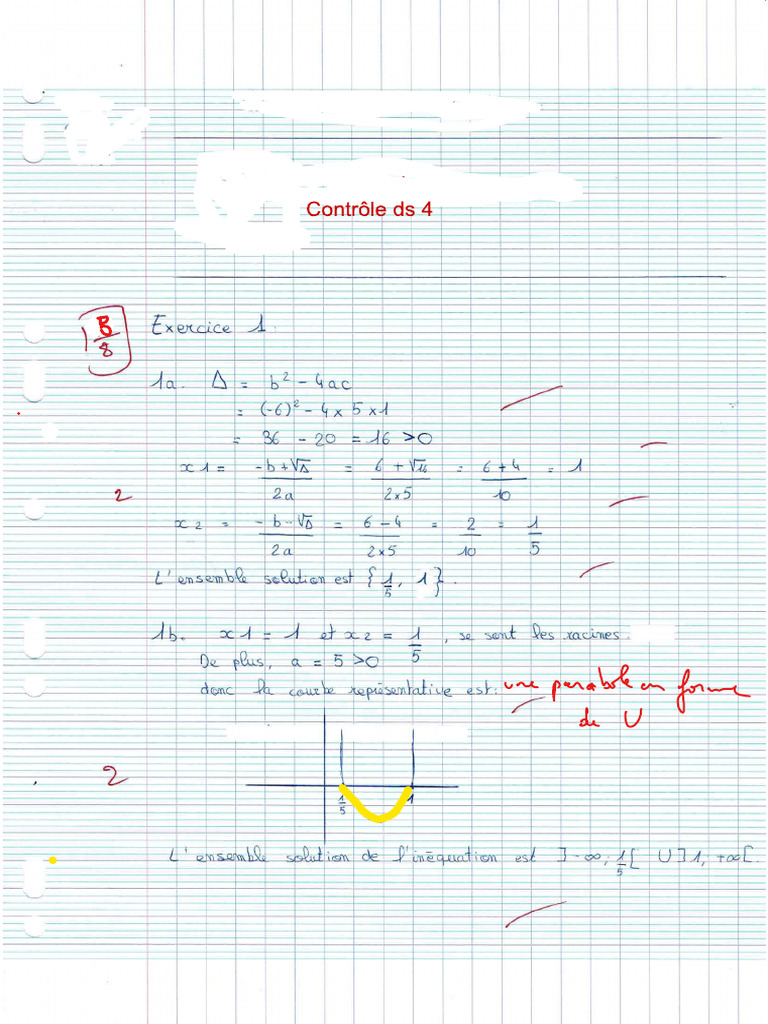 Contrôle ds 4
8
Exercice 1.
1a. Δ = b² - 4ac
= (-6)² - 4 × 5 × 1
= 36 - 20 = 16 > 0
x1 = (-b + √Δ)/2a = (6 + √16)/(2×5) = (6 + 4)/10 = 1
2
x2 = (-b - √Δ)/2a = (6 - 4)/(2×5) = 2/10 = 1/5
L'ensemble solution est {1/5, 1}.
1b. x1 = 1 et x2 = 1/5, se sont les racines.
De plus, a = 5 > 0
donc la courbe représentative est: une parabole en forme
de U
2
1/5 1
L'ensemble solution de l'inéquation est ]-∞; 1/5[ U ]1; +∞[.